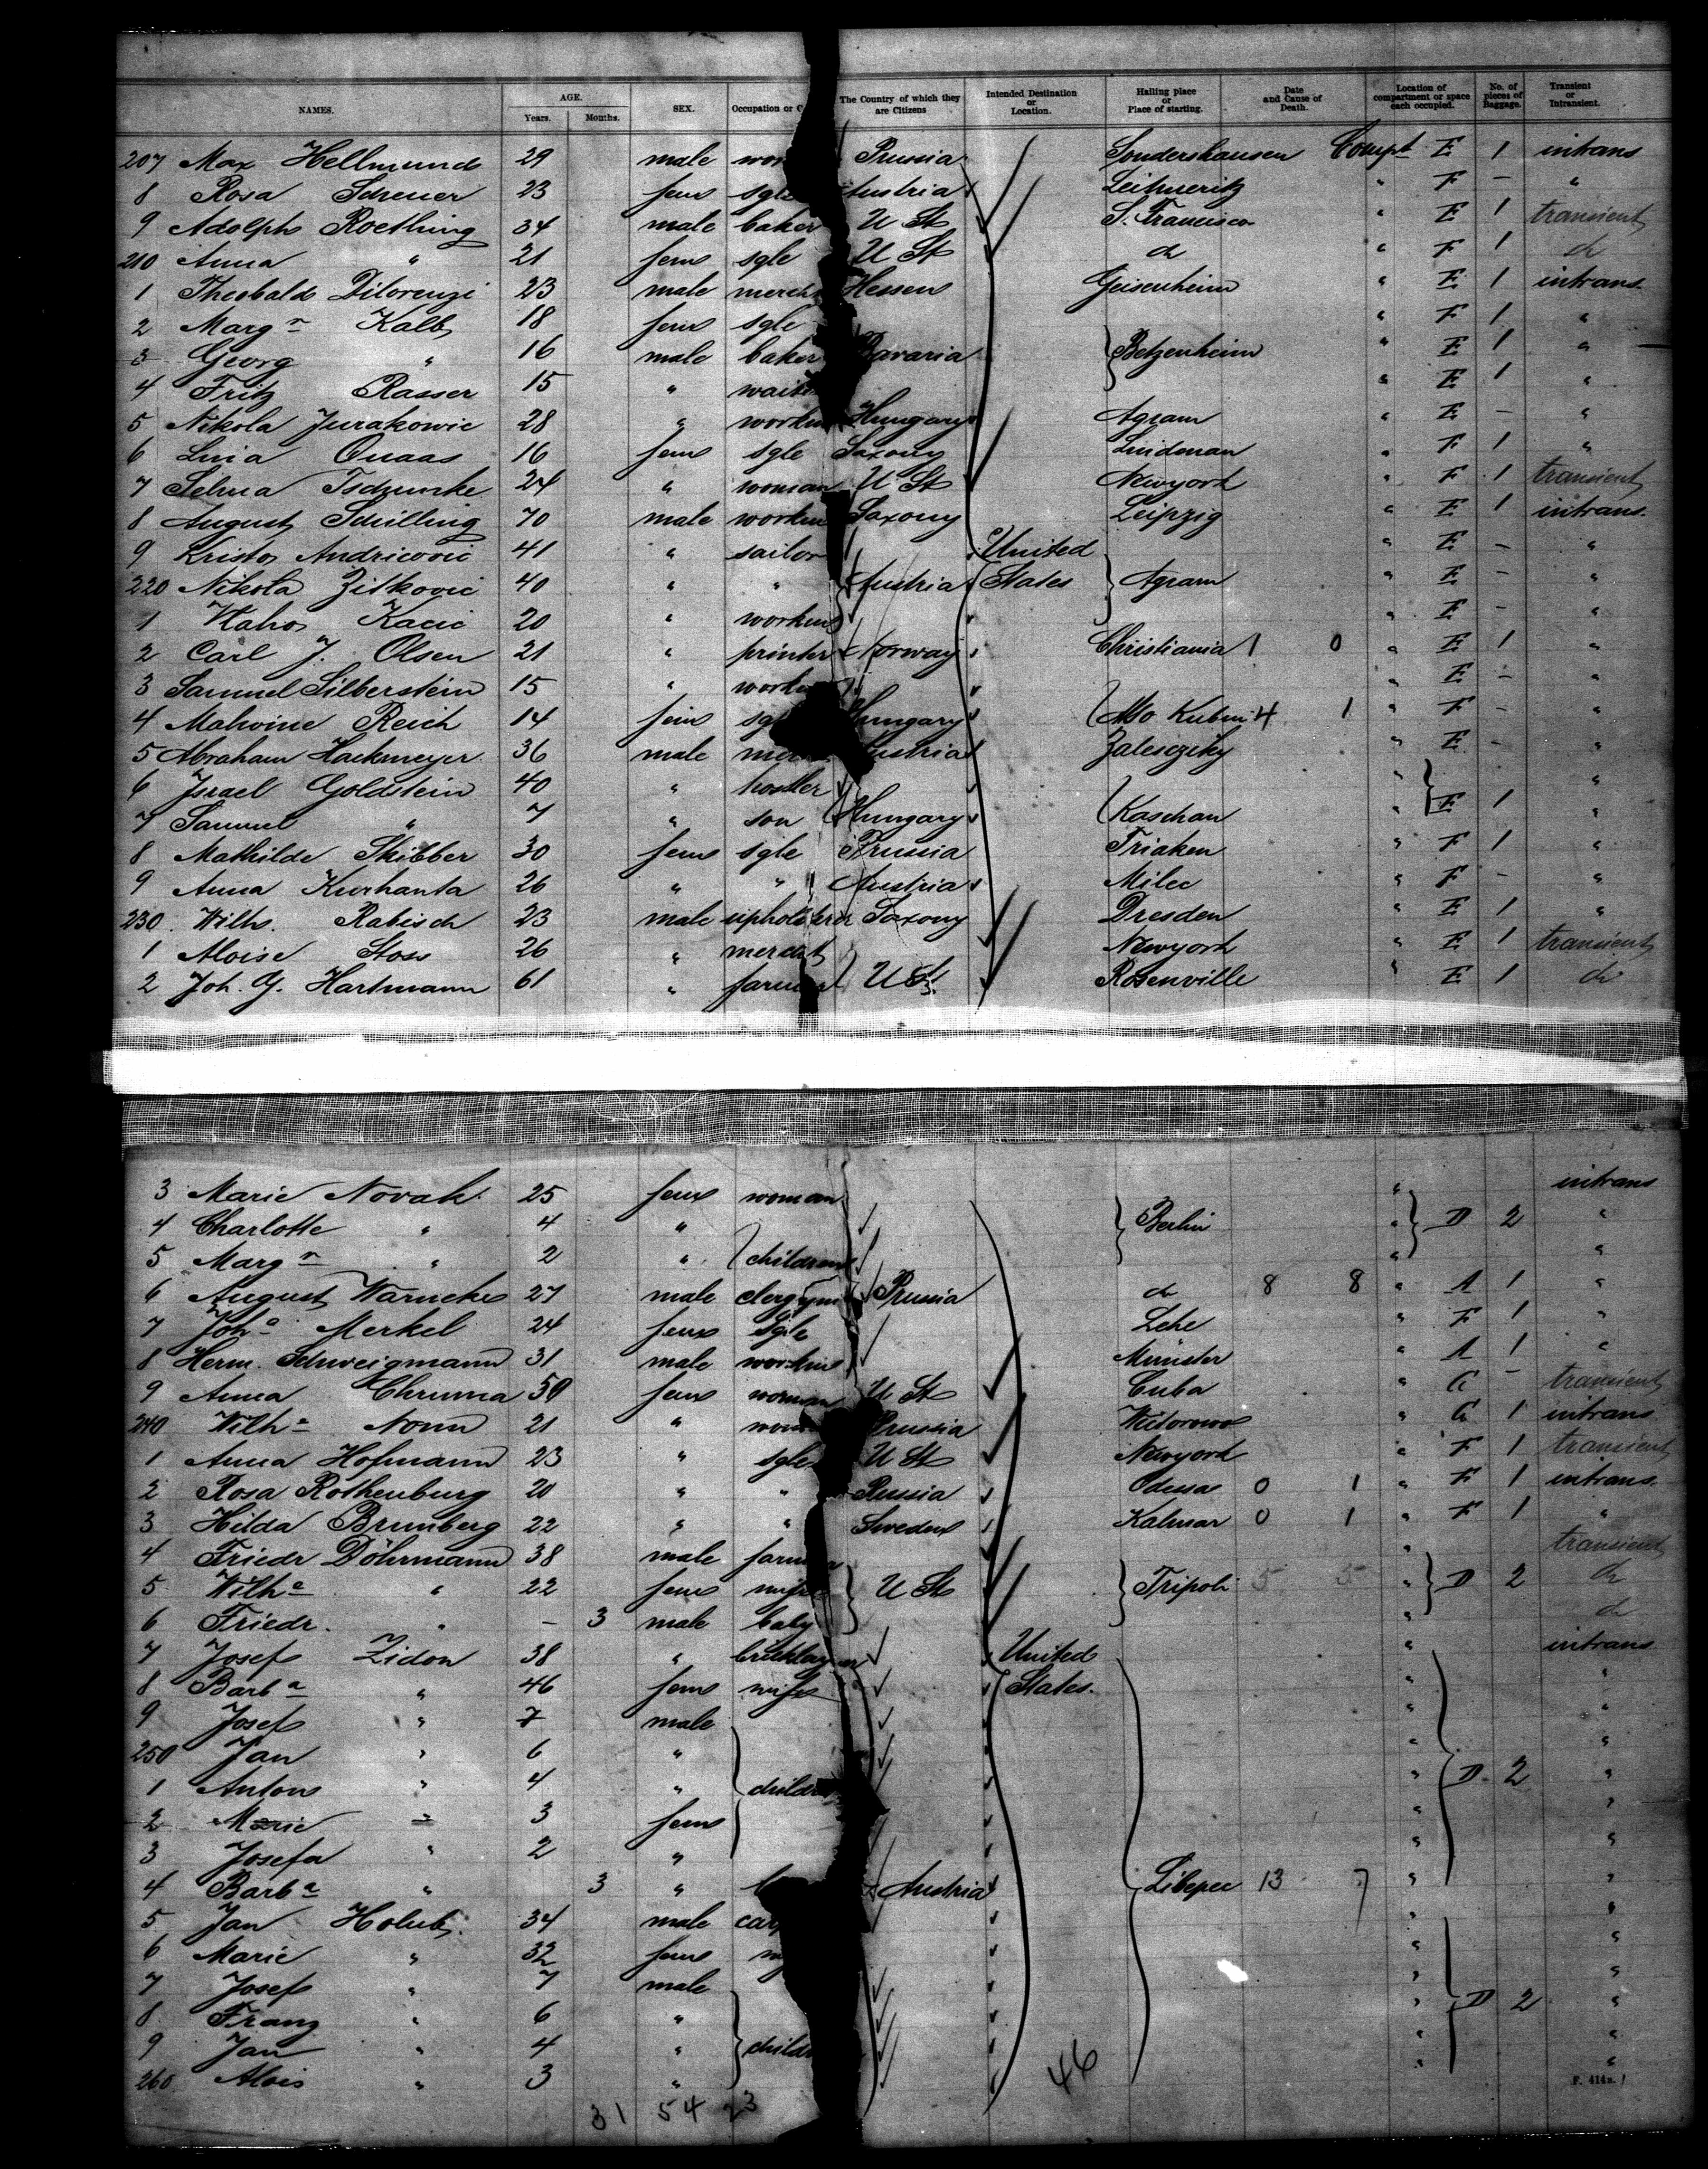 NAMES. AGE. Years. Months. SEX. Occupation or C The Country of which they are Citizens Intended Destination or Location. Hailing place or Place of starting. Date and Cause of Death. Location of compartment or space each occupied. No. of pieces of Baggage. Transient or Intransient.
207 Max Hellmund 29 male wor Prussia Sondershausen Compt E 1 intrans
8 Rosa Scheuer 23 fem sgle Austria Leitmeritz " F - "
9 Adolph Roething 34 male baker U St S. Francisco " E 1 transient
210 Anna " 21 fem sgle U St do " F 1 do
1 Theobald Dilorenzi 23 male mercht Hessen Geisenheim " E 1 intrans.
2 Marg a Kalb 18 fem sgle " F 1 "
3 Georg " 16 male baker Bavaria Betzenheim " E 1 "
4 Fritz Rasser 15 " waiter " E 1 "
5 Nikola Jurakowic 28 " workm Hungary Agram " E - "
6 Quaas 16 fem sgle Saxony Lindenau " F 1 "
7 Selma 24 " woman U St Newyork " F 1 transient
8 August Schilling 70 male workm Saxony Leipzig " E 1 intrans.
9 Kristo Andricovic 41 " sailor United " E - "
220 Nikola Zitkovic 40 " " Austria States Agram " E - "
1 Vlaho Kacic 20 " workm " E - "
2 Carl J. Olsen 21 " printer Norway Christiania 1 0 " E 1 "
3 Samuel Silberstein 15 " workm " E - "
4 Malwine Reich 14 fem sgl Hungary Also Kubin 4 1 " F - "
5 Abraham Hackmeyer 36 male mer Austria Zalescziky " E - "
6 Israel Goldstein 40 " hostler " "
7 Samuel " 7 " son Hungary Kaschau " E 1 "
8 Mathilde Skibber 30 fem sgle Prussia Triaken " F 1 "
9 Anna Kurhanta 26 " " Austria Milec " F - "
230 Wilh. Rabisch 23 male upholsterer Saxony Dresden " E 1 "
1 Aloise Stoss 26 " mercht Newyork " E 1 transient
2 Joh. G. Hartmann 61 " farmer U St. Rosenville " E 1 do
3 Marie Novak 25 fem woman " intrans
4 Charlotte " 4 " Berlin " D 2 "
5 Marg a " 2 " children " "
6 August Warneke 27 male clergym Prussia do 8 8 " A 1 "
7 Joh a Merkel 24 fem sgle Lehe " F 1 "
8 Herm. Schweigmann 31 male workm Münster " A 1 "
9 Anna Chruma 50 fem woman U St Cuba " G - transient
240 Wilh a Nonn 21 " wom Prussia " G 1 intrans
1 Anna Hofmann 23 " sgle U St Newyork " F 1 transient
2 Rosa Rothenburg 20 " " Russia Odessa 0 1 " F 1 intrans.
3 Hilda Brunberg 22 " " Sweden Kalmar 0 1 " F 1 "
4 Friedr Döhrmann 38 male farmer " transient
5 Wilh a " 22 fem wife U St Tripoli 5 5 " D 2 do
6 Friedr. " - 3 male baby " do
7 Josef Zidon 38 " bricklayer United " intrans
8 Barb a " 46 fem wife States. " "
9 Josef " 7 male " "
250 Jan " 6 " " "
1 Anton " 4 " childr " D 2 "
2 Marie " 3 fem " "
3 Josefa " 2 " " "
4 Barb a " 3 " Austria Libepec 13 7 " "
5 Jan Holub. 34 male car " "
6 Marie " 32 fem w " "
7 Josef " 7 male " "
8 Franz " 6 " " D 2 "
9 Jan " 4 " childr " "
260 Alois " 3 " " "
46
F. 414a.
31 54 23